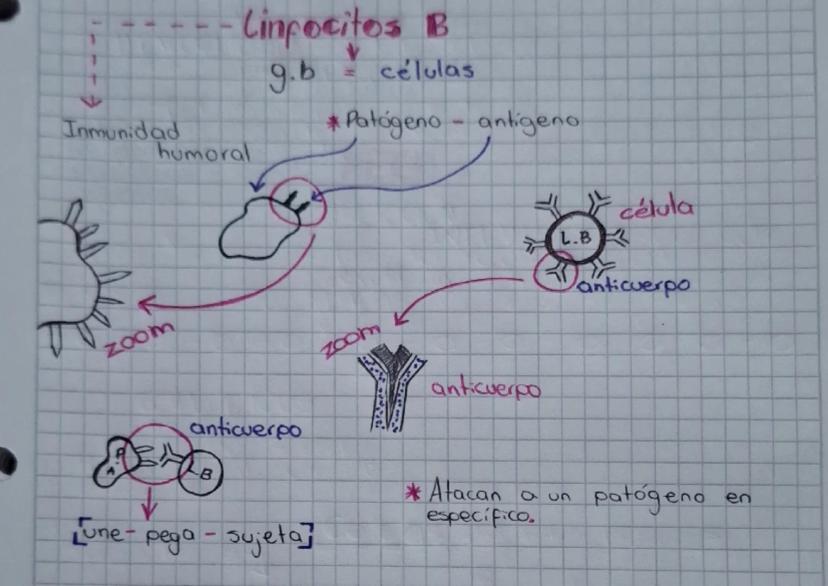 Linfocitos B
g.b = células
Inmunidad
humoral
* Patógeno - antígeno
célula
L.B
anticuerpo
zoom
zoom
anticuerpo
anticuerpo
B
[une - pega - sujeta]
* Atacan a un patógeno en
específico.